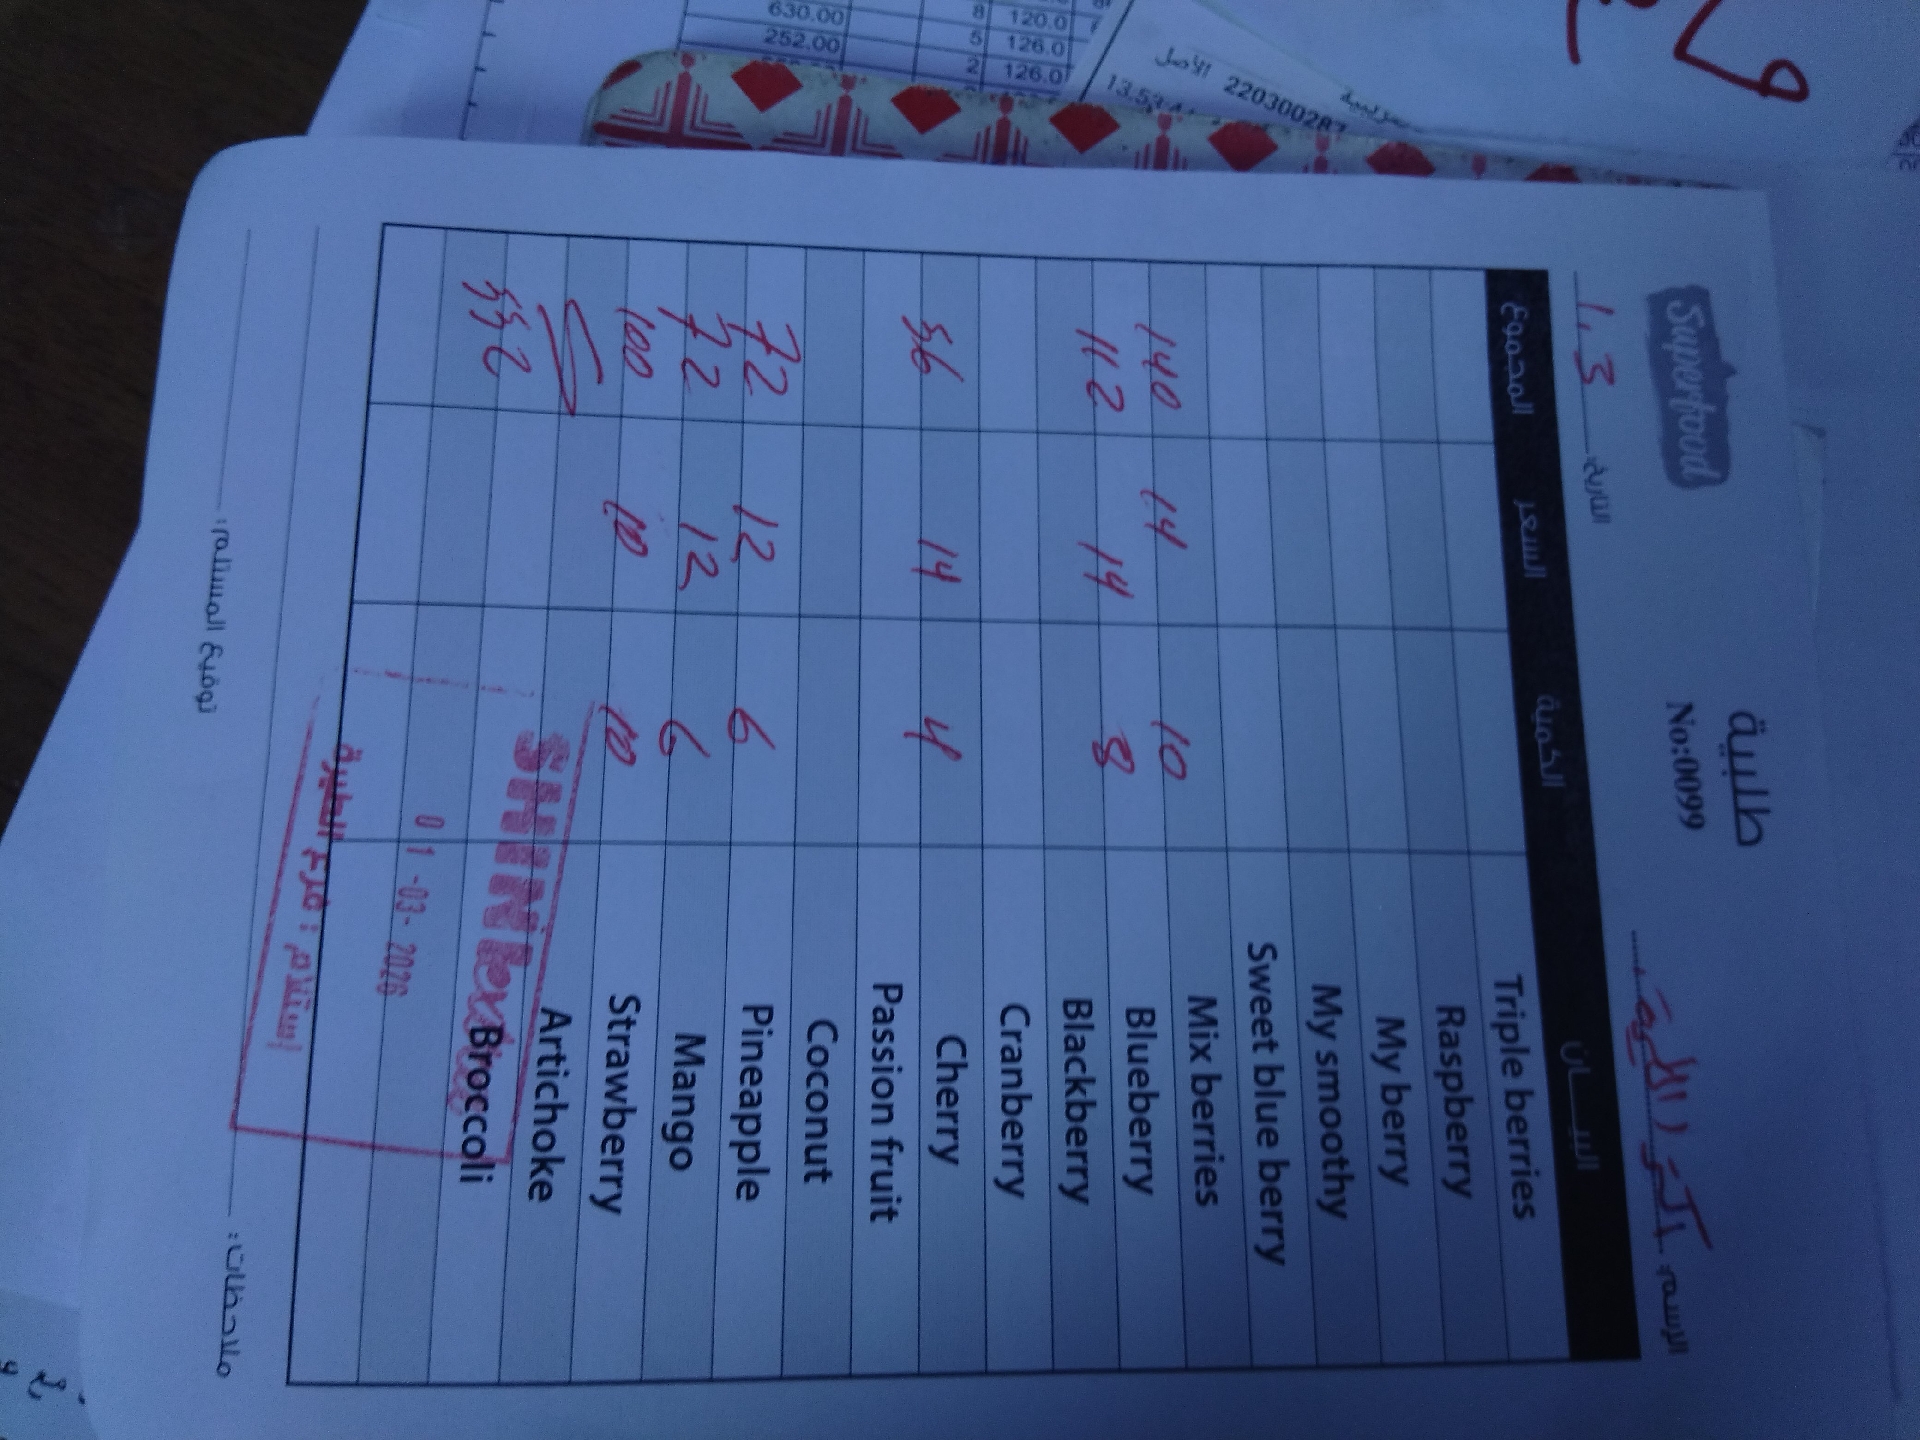 630.00 8 120.0
252.00 5 126.0
2 126.0
الأصل 2203000287
Superfood
طلبية
No:0099
التاريخ: 1.3
الإسم:
البيـــان الكمية السعر المجموع
Triple berries
Raspberry
My berry
My smoothy
Sweet blue berry
Mix berries
Blueberry 10 14 140
Blackberry 8 14 112
Cranberry
Cherry 4 14 56
Passion fruit
Coconut
Pineapple 6 12 72
Mango 6 12 72
Strawberry 10 10 100
Artichoke
Broccoli 552
SHINI
01-03-2026
إستلام : فرع الطيرة
ملاحظات:
توقيع المستلم: